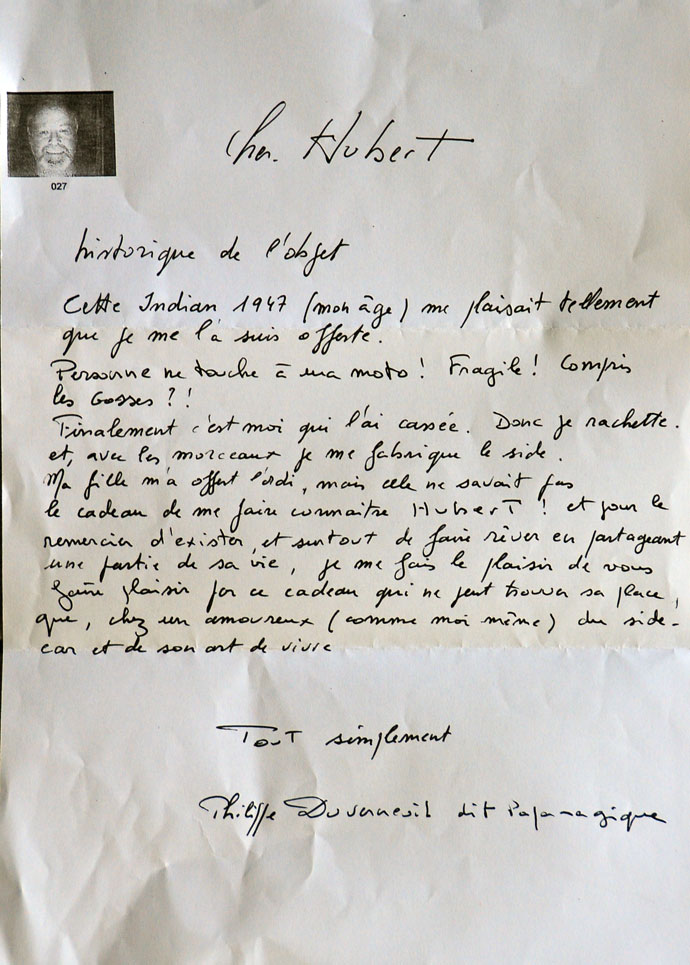 027
Cher Hubert
historique de l'objet
Cette Indian 1947 (mon âge) me plaisait tellement
que je me l'a suis offerte.
Personne ne touche à ma moto ! Fragile ! Compris
les Gosses ? !
Finalement c'est moi qui l'ai cassée. Donc je rachette.
et, avec les morceaux je me fabrique le side.
Ma fille m'a offert l'ordi, mais elle ne savait pas
le cadeau de me faire connaitre Hubert ! et pour le
remercier d'exister, et surtout de faire rêver en partageant
une partie de sa vie, je me fais le plaisir de vous
faire plaisir par ce cadeau qui ne peut trouver sa place,
que, chez un amoureux (comme moi même) du side-
car et de son art de vivre
Tout simplement
Philippe Duverneuil dit Papamagique